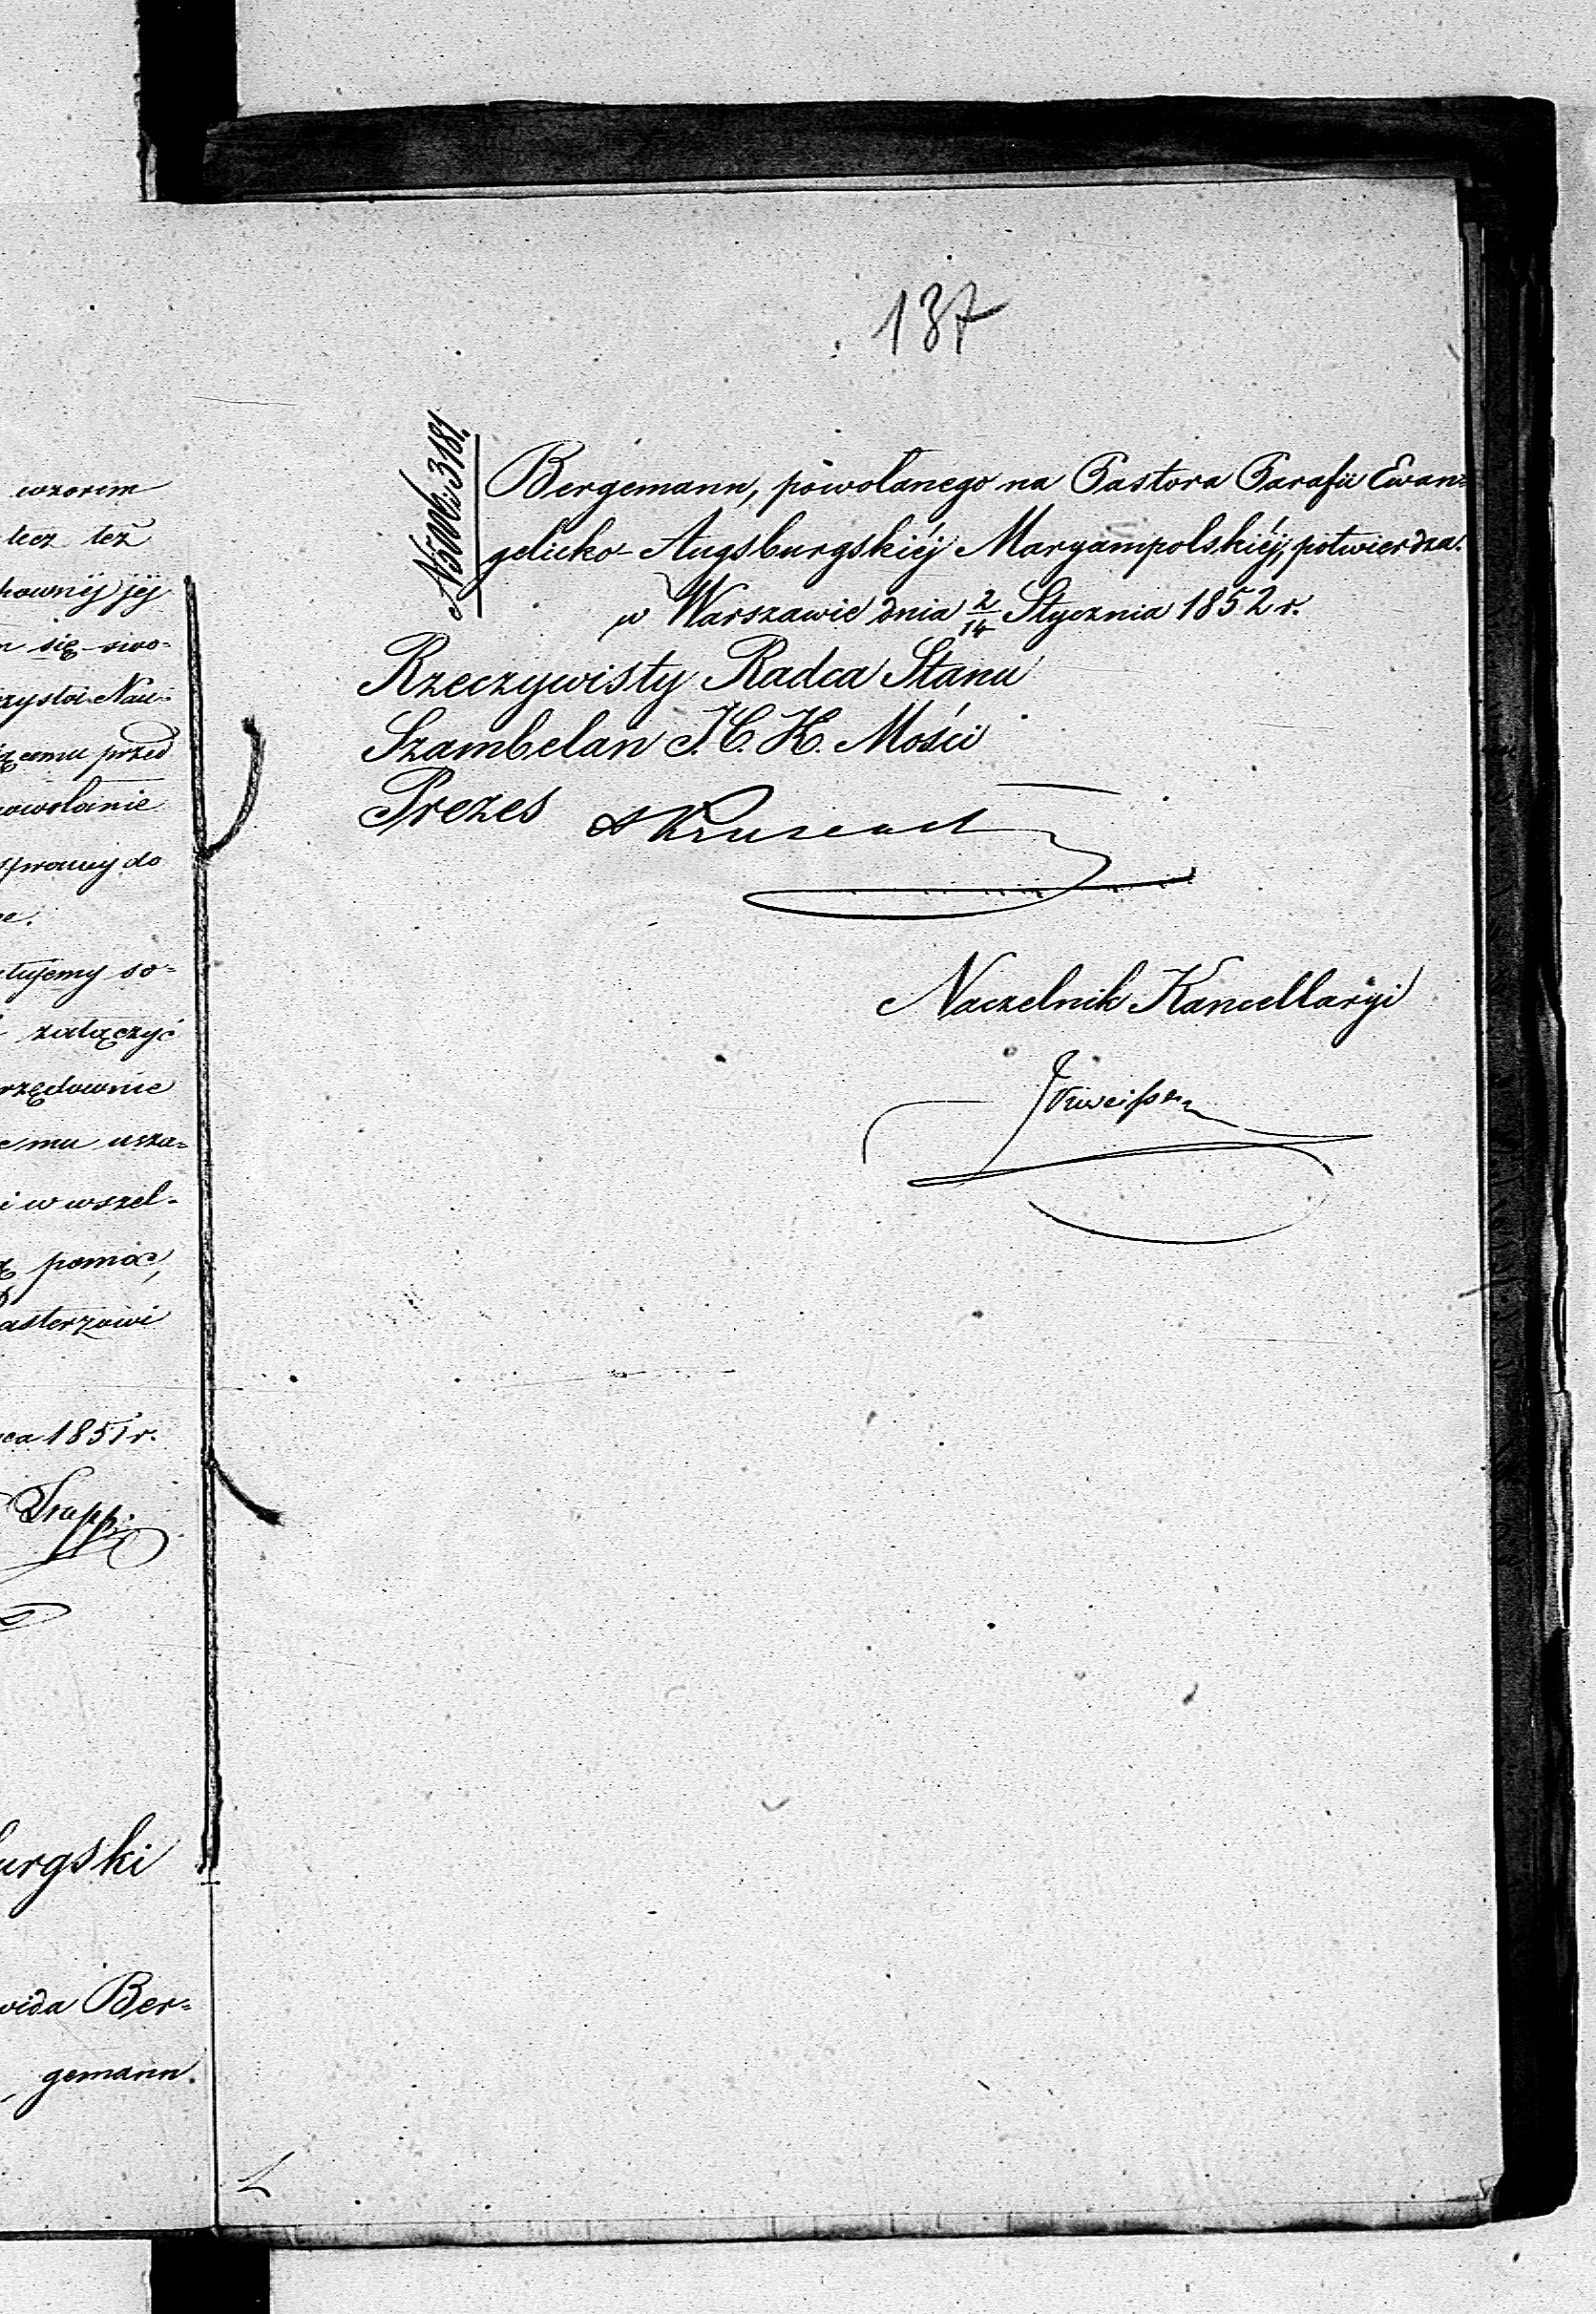 wzorem
lecz też
kownéj jéj
się swo-
czystéi Nau-
cemu przed
powołanie
sprawy do
tujemy so-
załączyć
rzędownie
emu usza-
i w wszel-
pomoc,
asterzowi
1851 r.
urgski
wida Ber-
gemann.
137
3181.
Bergemann, powołanego na Pastora Parafii Ewan-
gelicko-Augsburgskiéj Maryampolskiéj, potwierdza.
w Warszawie dnia 2/14 Stycznia 1852 r.
Rzeczywisty Radca Stanu
Szambelan J. C. K. Mości
Prezes
Naczelnik Kancellaryi